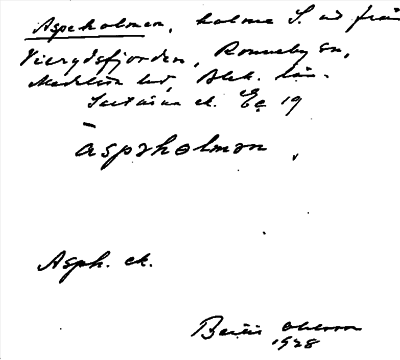 Aspeholmen, holme S. ut från
Vierydsfjorden, Ronneby sn,
Medelsta hd, Blek. län.
ek. Ec 19
āspəholmən
Asph. ek.
Bertil Ohlsson
1928